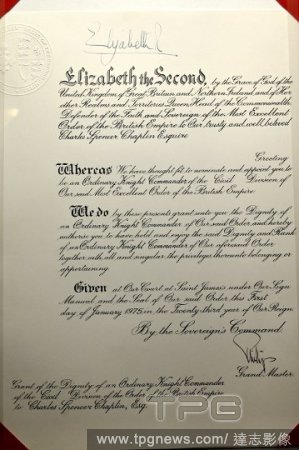 Elizabeth R
Elizabeth the Second, by the Grace of God of the
United Kingdom of Great Britain and Northern Ireland and of Her
other Realms and Territories Queen, Head of the Commonwealth,
Defender of the Faith and Sovereign of the Most Excellent
Order of the British Empire to Our trusty and well beloved
Charles Spencer Chaplin Esquire
Greeting
Whereas We have thought fit to nominate and appoint you to
be an Ordinary Knight Commander of the Civil Division of
Our said Most Excellent Order of the British Empire
We do by these presents grant unto you the Dignity of
an Ordinary Knight Commander of Our said Order and hereby
authorise you to have hold and enjoy the said Dignity and Rank
of an Ordinary Knight Commander of Our aforesaid Order
together with all and singular the privileges thereunto belonging or
appertaining.
Given at Our Court at Saint James's under Our Sign
Manual and the Seal of Our said Order this First
day of January 1975 in the Twenty-third year of Our Reign.
By the Sovereign's Command.
Philip
Grand Master.
Grant of the Dignity of an Ordinary Knight Commander
of the Civil Division of the Order of the British Empire
to Charles Spencer Chaplin, Esq.
TPG
www.tpgnews.com/ 達志影像